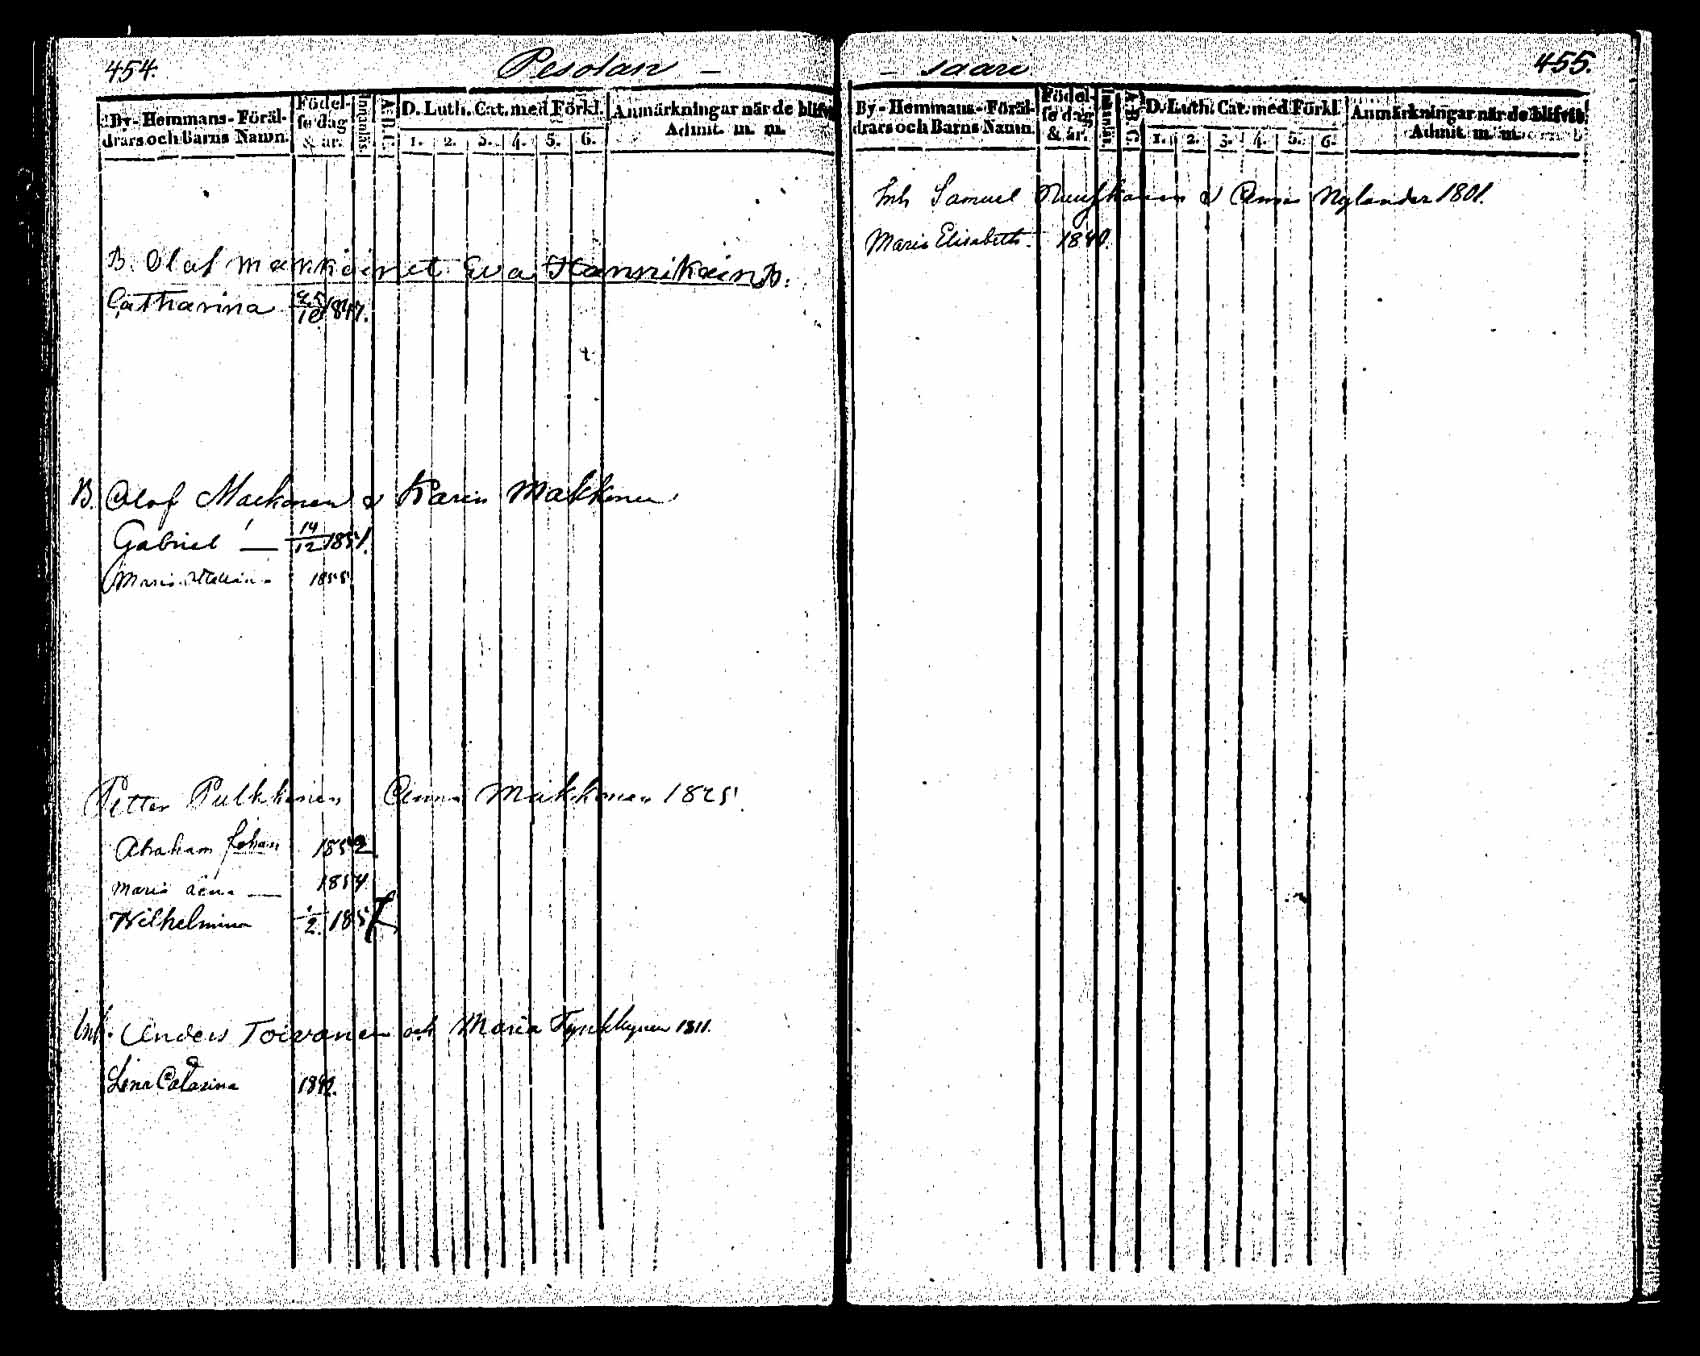 454.
Pesolan -
By- Hemmans- Föräl-
drars och Barns Namn.
Födel-
se dag
& år.
Innanläs.
A.B.C.
D. Luth. Cat. med Förkl.
1. 2. 3. 4. 5. 6.
Anmärkningar när de blifvit
Admit. m. m.
B. Olaf Makkoinet Eva Hannikain
Catharina 25/10 1847.
B. Olof Mackonen & Karin Makkonen
Gabriel — 14/12 1851.
Maria 1855
Petter Pulkkinen Anna Makkonen 1825.
Abraham Johan 1852
Maria Anna — 1854
Wilhelmina /2. 185
Inh. Anders Toivanen och Maria Tynkkynen 1811.
Lena Catarina 1842.
- saari
455.
By- Hemmans- Föräl-
drars och Barns Namn.
Födel-
se dag
& år.
Innanläs.
A.B.C.
D. Luth. Cat. med Förkl.
1. 2. 3. 4. 5. 6.
Anmärkningar när de blifvit
Admit. m. m.
Inh Samuel & Anna Nylander 1801.
Maria Elisabeth. 1840.